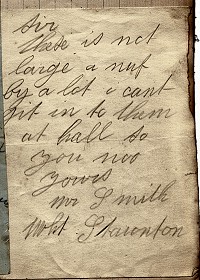 Sir
these is not
large a nuf
by a lot i cant
git in to them
at hall so
you noo
yours
Mr Smith
Wht Staunton